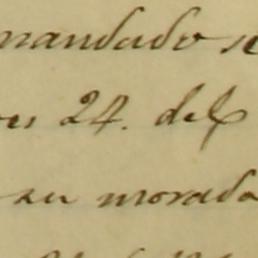 mandado se
24. del
su morada